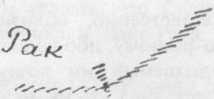 Рак